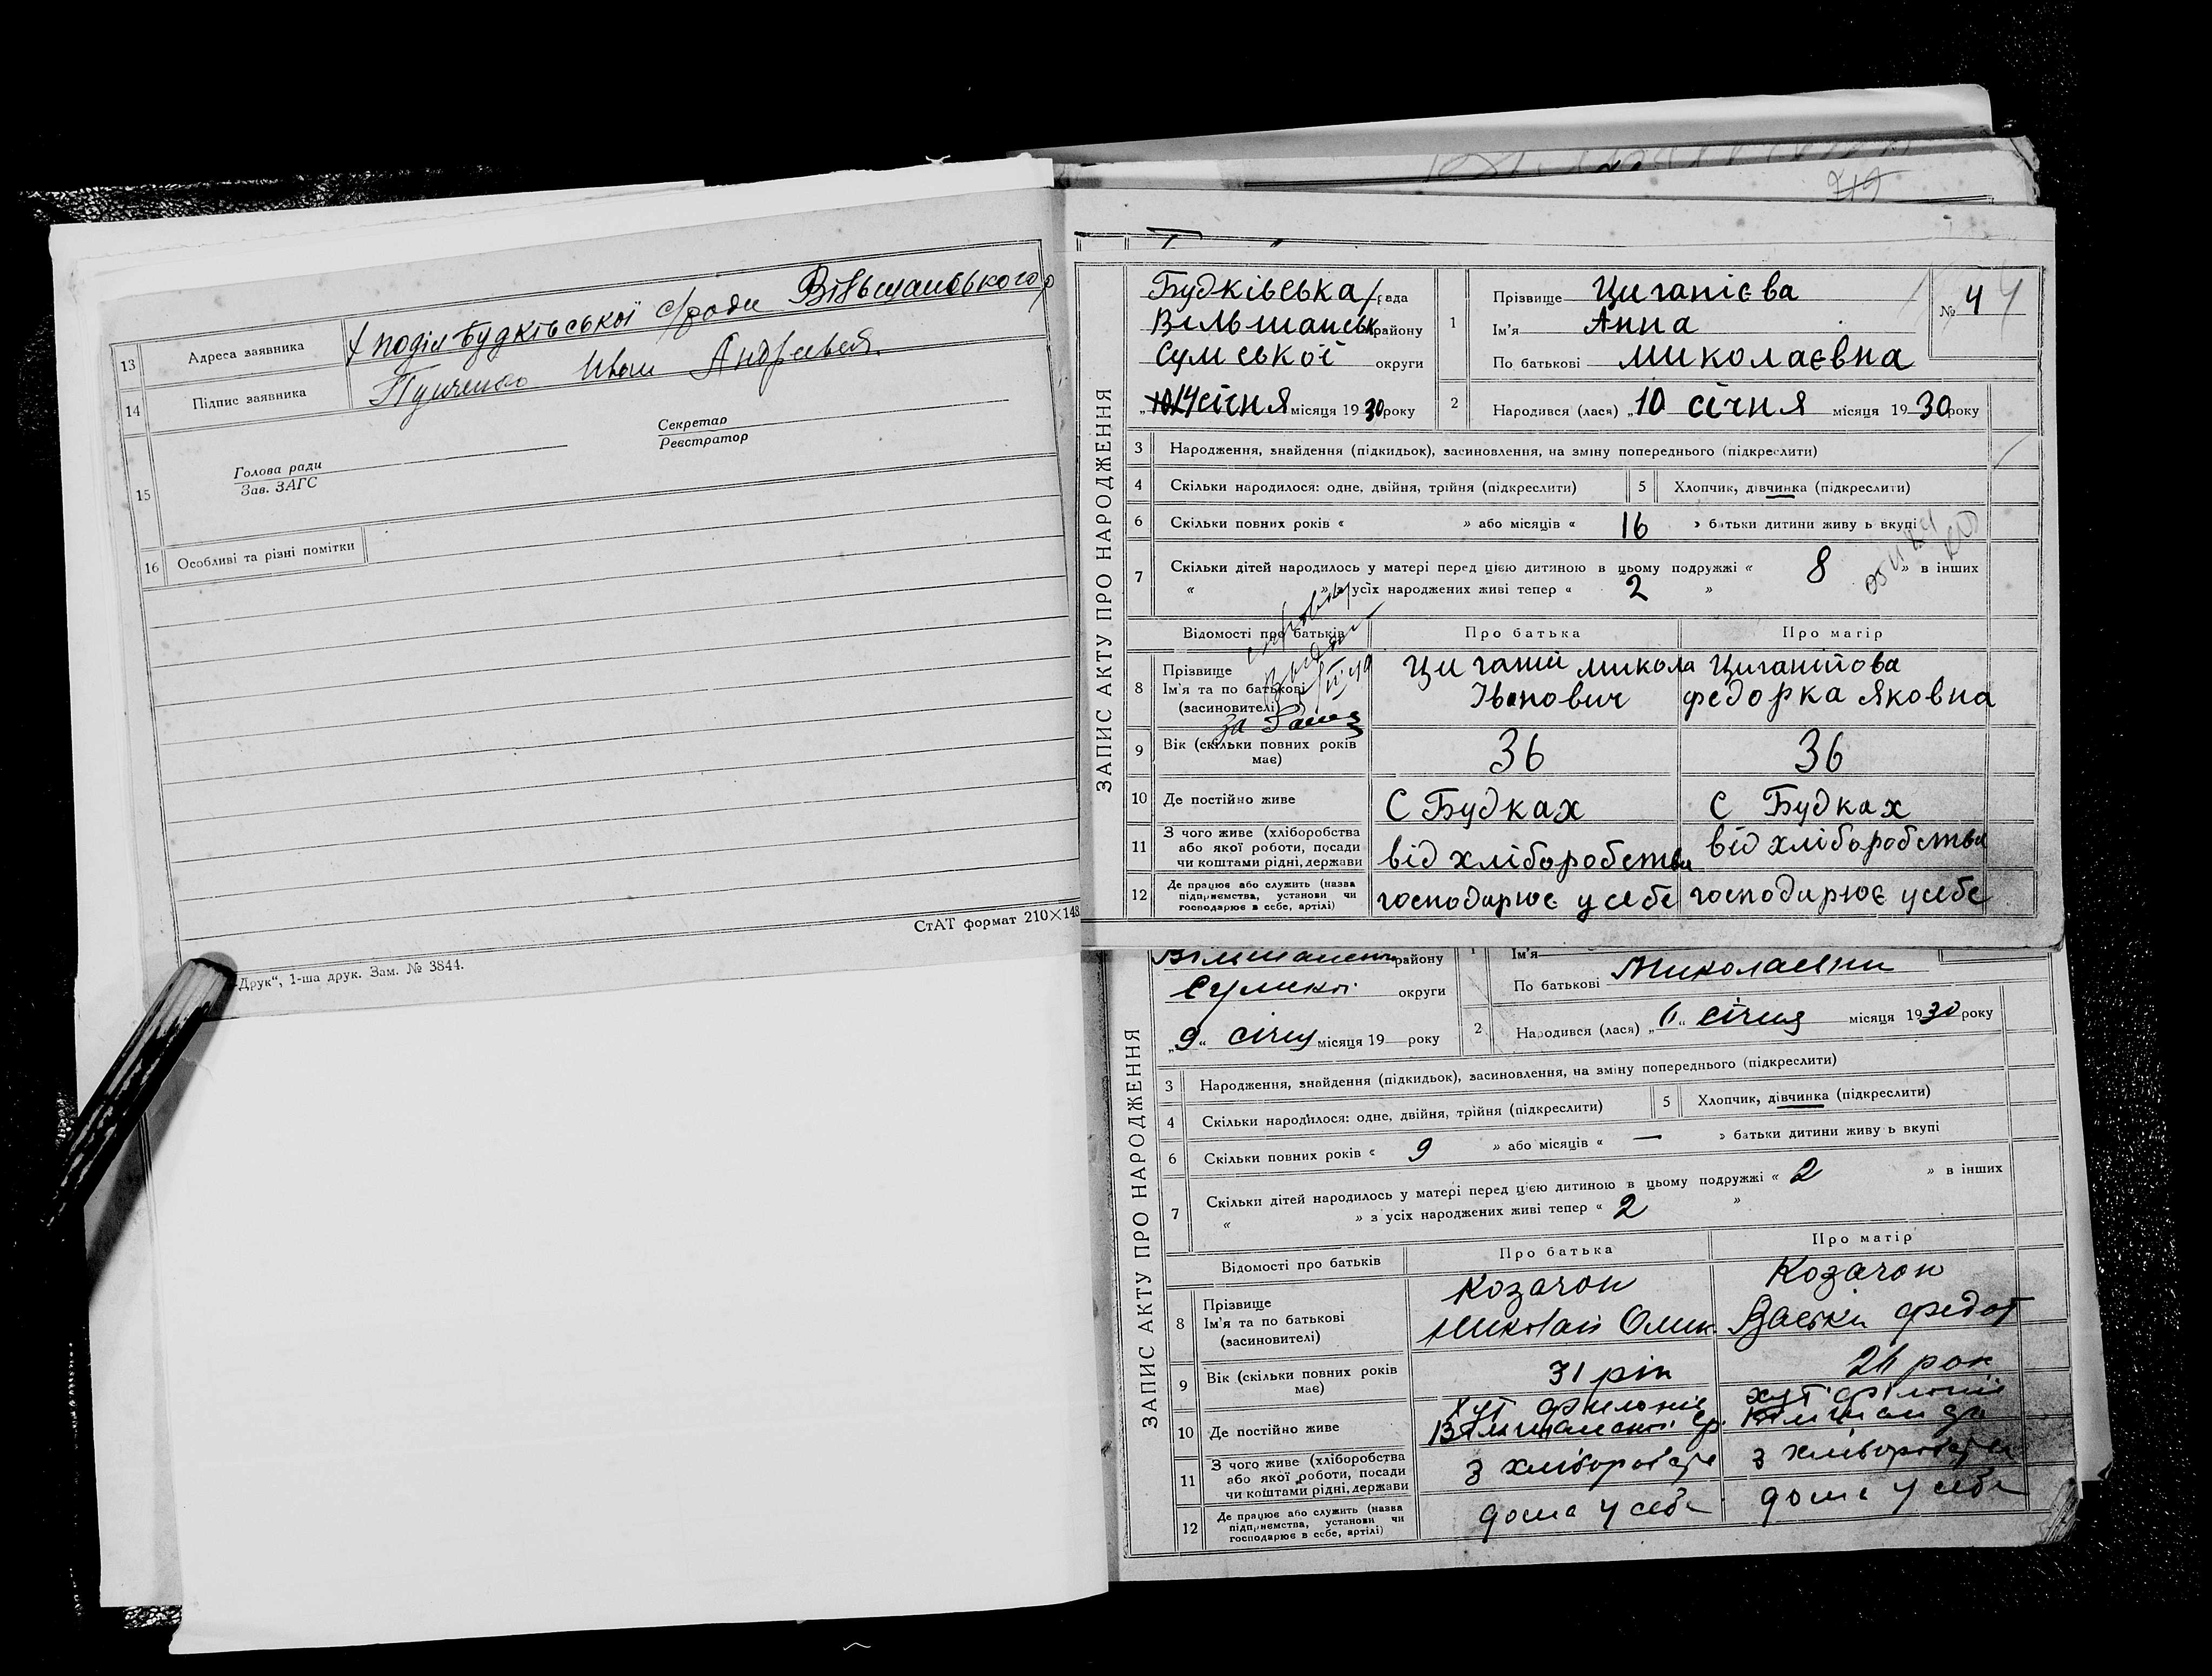 13 Адреса заявника х поділ Будківської с/ради Вільшанського р
14 Підпис заявника Пунченко Иван Андреевич
Секретар
Реєстратор
15 Голова ради
Зав. ЗАГС
16 Особливі та різні помітки
СтАТ формат 210×148
Друк“, 1-ша друк. Зам. № 3844.
719
ЗАПИС АКТУ ПРО НАРОДЖЕННЯ
Будківська с/рада
Вільшанськ району
Сумської округи
„14 січня місяця 1930 року
1 Прізвище Циганієва
Ім'я Анна
По батькові Миколаєвна
№ 4 4
2 Народився (лася) „10 січня місяця 1930 року
3 Народження, знайдення (підкидьок), засиновлення, на зміну попереднього (підкреслити)
4 Скільки народилося: одне, двійня, трійня (підкреслити) 5 Хлопчик, дівчинка (підкреслити)
6 Скільки повних років « » або місяців « 16 » батьки дитини живу ь вкупі
7 Скільки дітей народилось у матері перед цією дитиною в цьому подружжі « 8 » в інших
« » з усіх народжених живі тепер « 2 »
Відомості про батьків Про батька Про матір
8 Прізвище
Ім'я та по батькові
(засновителі)
Циганій Микола
Іванович
Циганійова
Федорка Яковна
9 Вік (скільки повних років має) 36 36
10 Де постійно живе С Будках С Будках
11 З чого живе (хліборобства
або якої роботи, посади
чи коштами рідні, держави
від хліборобства від хліборобства
12 Де працює або служить (назва
підприємства, установи чи
господарює в себе, артілі)
господарює у себе господарює у себе
ЗАПИС АКТУ ПРО НАРОДЖЕННЯ
Вільшанськ району
Сумської округи
„9“ січня місяця 19 року
1 Ім'я
По батькові Миколаевни
2 Народився (лася) „6“ січня місяця 1930 року
3 Народження, знайдення (підкидьок), засиновлення, на зміну попереднього (підкреслити)
4 Скільки народилося: одне, двійня, трійня (підкреслити) 5 Хлопчик, дівчинка (підкреслити)
6 Скільки повних років « 9 » або місяців « — » батьки дитини живу ь вкупі
7 Скільки дітей народилось у матері перед цією дитиною в цьому подружжі « 2 » в інших
« » з усіх народжених живі тепер « 2 »
Відомості про батьків Про батька Про матір
8 Прізвище
Ім'я та по батькові
(засиновителі)
Козачок
Николай
Козачок
Федот
9 Вік (скільки повних років має) 31 рік 26 рок
10 Де постійно живе
хут
хут
11 З чого живе (хліборобства
або якої роботи, посади
чи коштами рідні, держави
з хліборобства з хліборобства
12 Де працює або служить (назва
підприємства, установи чи
господарює в себе, артілі)
дома у себе дома у себе